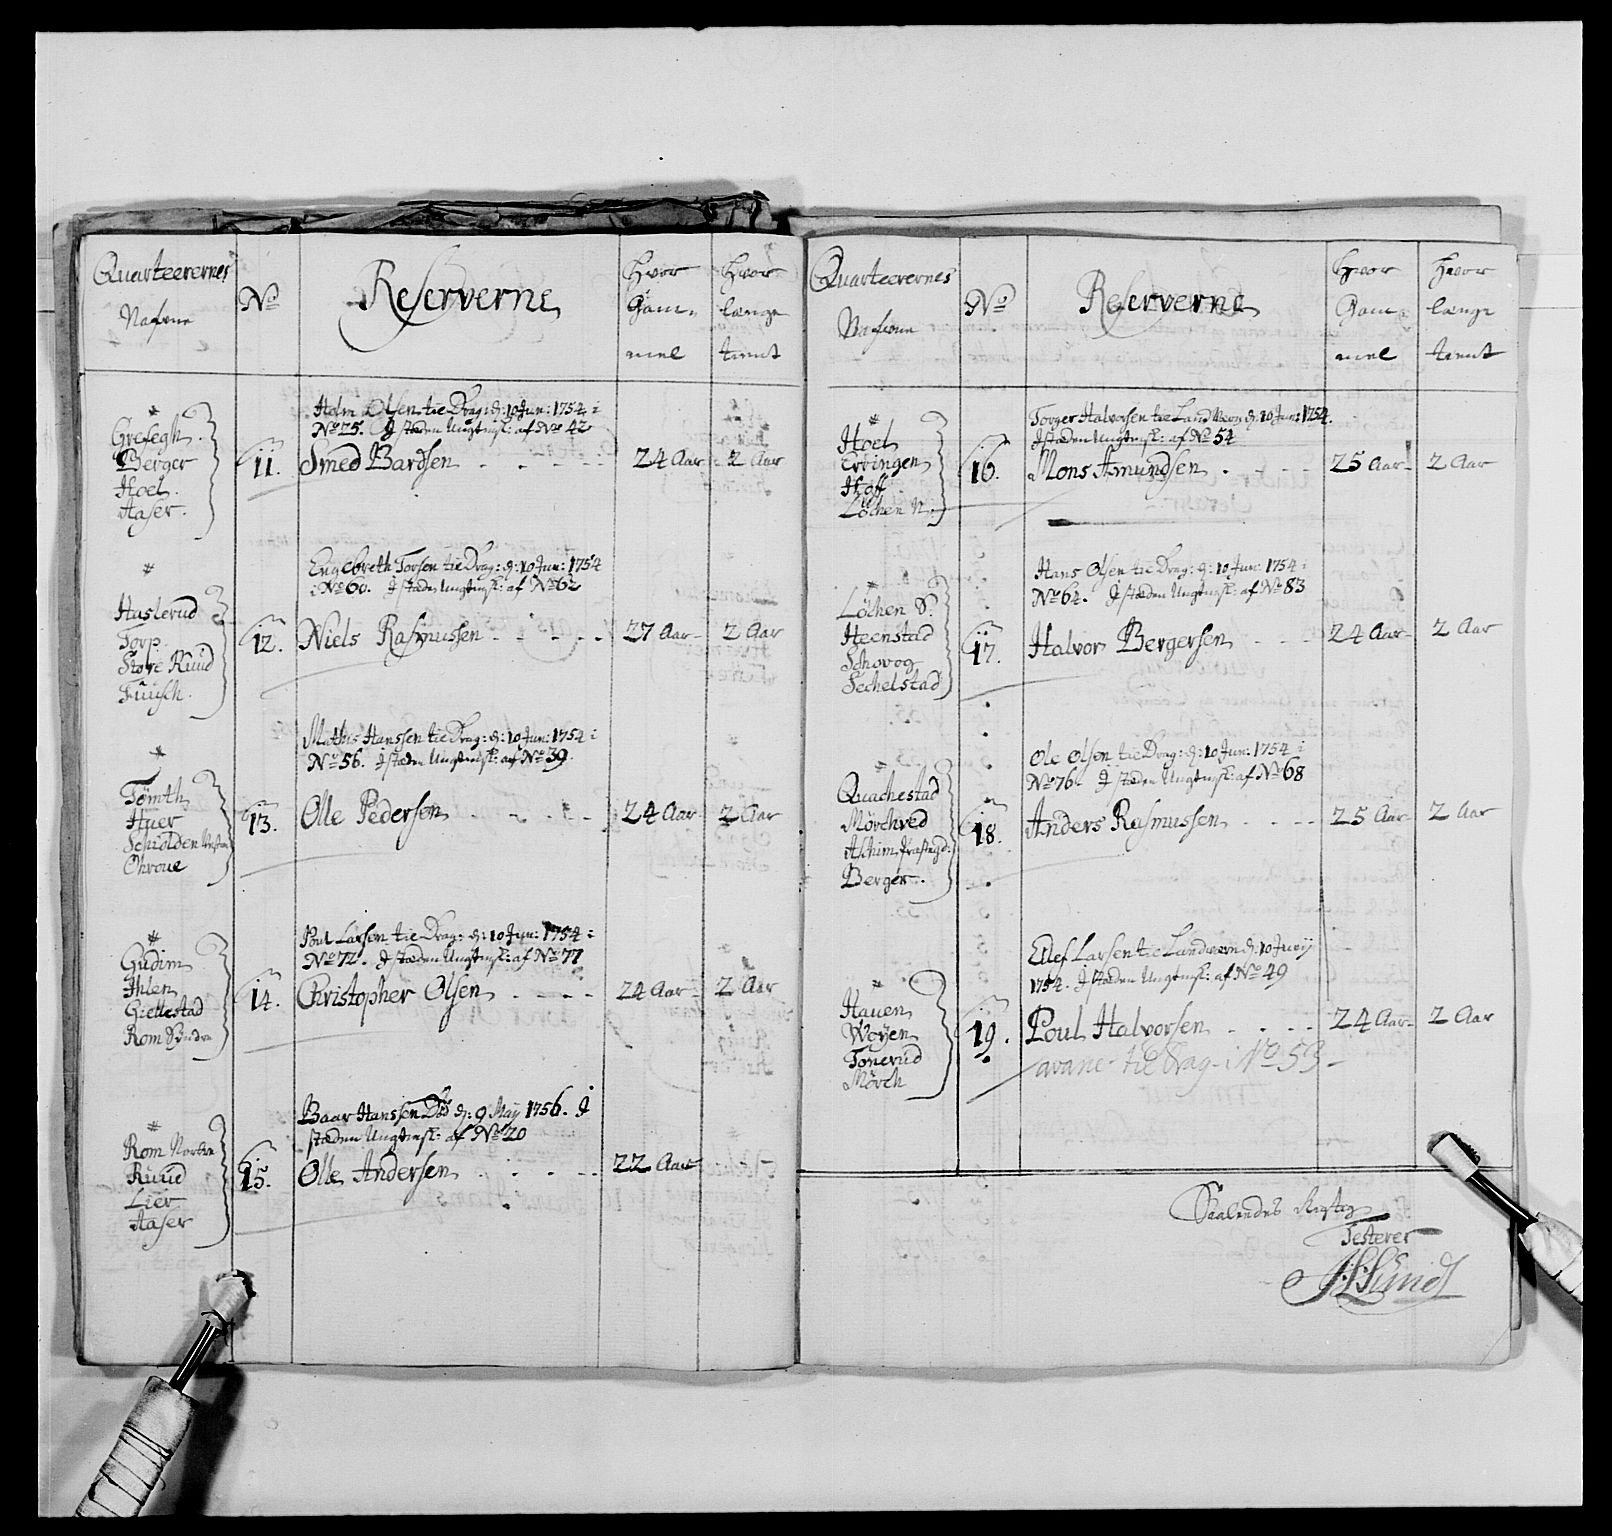 Quarteerernes
Nafne
No
Reserverne
Hvor
Gam-
mel
Hvor
længe
tient
Grefegh
Berger
Hoel
Aaser
11.
Holm Olsen til Drag: d: 10 Jun: 1754 i
No 25. I stæden Ungtmsk: af No 42
Smed Bardsen
24 Aar
2 Aar
Haslerud
Torp
Store Ruud
Fuusch
12.
Engebreth Torsen til Drag: d: 10 Jun: 1754
i No 60. I stæden Ungtmsk: af No 62
Niels Rasmussen
27 Aar
2 Aar
Tømth
Huer
Schiolden
Ohroue
13.
Mathis Hanssen til Drag: d: 10 Jun: 1754 i
No 56. I stæden Ungtmsk: af No 39
Olle Pedersen
24 Aar
2 Aar
Gudim
Ihlen
Giettestad
Rom Søndre
14.
Poul Larsen til Drag: d: 10 Jun: 1754 i
No 72. I stæden Ungtmsk: af No 77
Christopher Olsen
24 Aar
2 Aar
Rom Nordre
Ruud
Lier
Aaser
15.
Baar Hanssen Død d: 9 May 1756. I
stæden Ungtmsk: af No 20
Olle Andersen
22 Aar
Quarteerernes
Nafne
No
Reserverne
Hvor
Gam-
mel
Hvor
længe
tient
Hoel
Ertingen
Hoff
Løchen N:
16.
Torger Halvorsen til Land Værn d: 10 Jun: 1754.
I stæden Ungtmsk: af No 54
Mons Amundsen
25 Aar
2 Aar
Løchen S:
Heenstad
Schovog
Sechelstad
17.
Hans Olsen til Drag: d: 10 Jun: 1754 i
No 64. I stæden Ungtmsk: af No 83
Halvor Bergersen
24 Aar
2 Aar
Quachestad
Mørchved
Aschim Præstegd:
Berger
18.
Ole Olsen til Drag: d: 10 Jun: 1754 i
No 76. I stæden Ungtmsk: af No 68
Anders Rasmussen
25 Aar
2 Aar
Hauen
Woyen
Tonerud
Mørch
19.
Ellef Larsen til Landværn d: 10 Junij
1754. I stæden Ungtmsk: af No 49
Poul Halvorsen
24 Aar
2 Aar
avanc- til Drag- i No 53
Saalendes Rigtig
Testerer
Lund